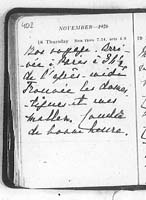 402
NOVEMBER—1926
18 Thursday Sun rises 7.14, sets 4.9
Bon voyage. Arri-
vée à Paris à 3h½
de l'après-midi
Trouvée les dames
et mes
malles. Couchée
de bonne heure.